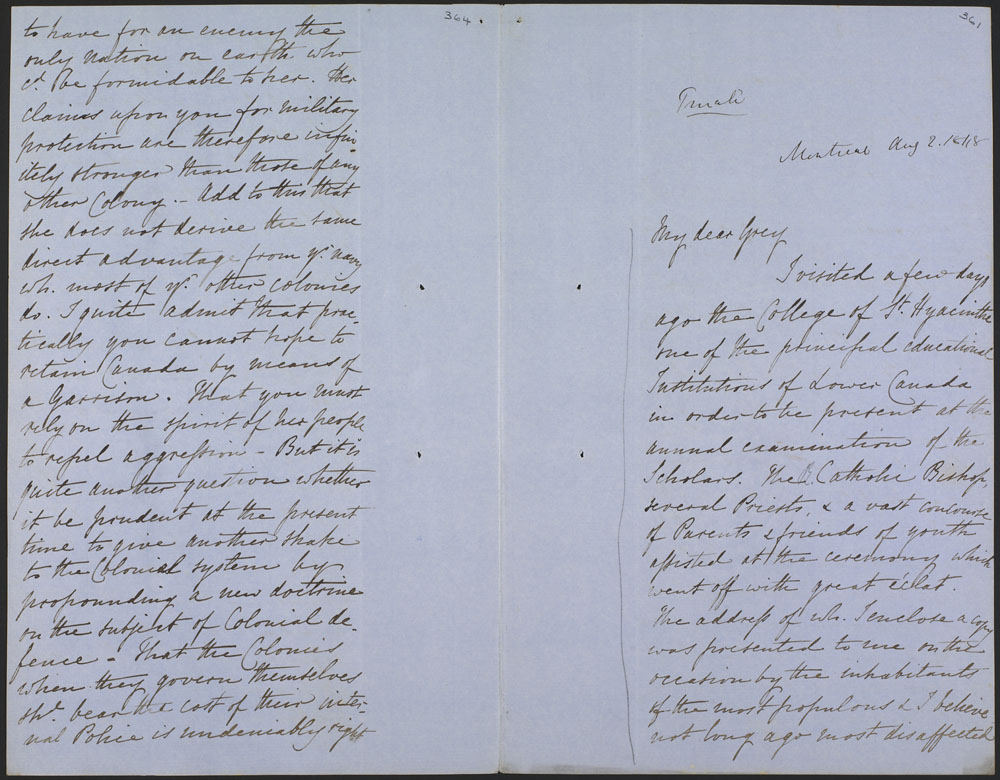 364.
to have for an enemy the
only nation on earth who
cd. be formidable to her. Her
claims upon you for military
protection are therefore infin-
itely stronger than those of any
other Colony. - Add to this that
she does not derive the same
direct advantage from yr. navy
wh. most of yr. other colonies
do. I quite admit that prac-
tically you cannot hope to
retain Canada by means of
a Garrison. That you must
rely on the spirit of her people
to repel aggression - But it is
quite another question whether
it be prudent at the present
time to give another shake
to the Colonial system by
propounding a new doctrine
on the subject of Colonial de-
fence - That the Colonies
when they govern themselves
shd. bear the cost of their inter-
nal Police is undeniably right
361
Private
Montreal Aug 2. 1848
My dear Grey
I visited a few days
ago the College of St. Hyacinthe
one of the principal educational
Institutions of Lower Canada
in order to be present at the
annual examination of the
Scholars. The R. Catholic Bishop,
several Priests, & a vast concourse
of Parents & friends of youth
assisted at the ceremony which
went off with great éclat.
The address of wh. I enclose a copy
was presented to me on the
occasion by the inhabitants
of the most populous & I believe
not long ago most disaffected